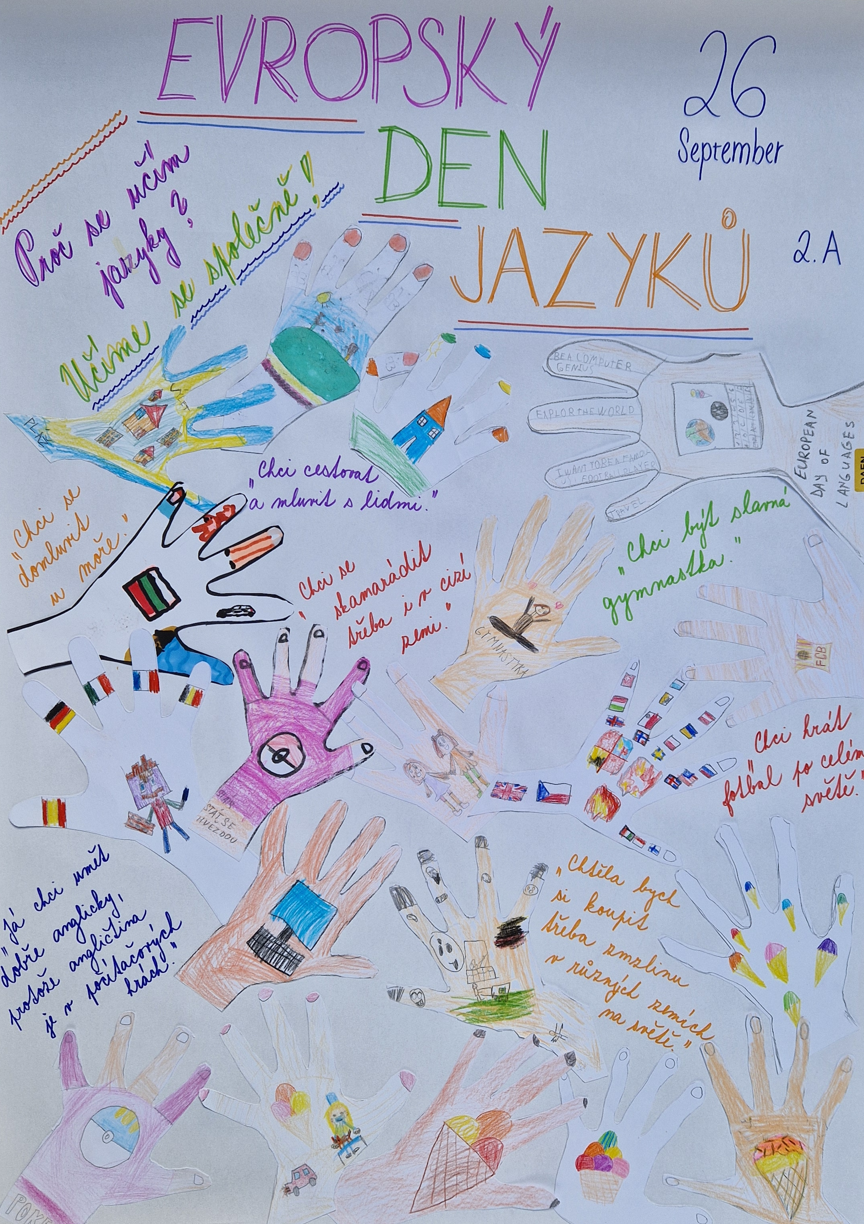 EVROPSKÝ
DEN
JAZYKŮ
26
September
2.A
Proč se učím
jazyky?
Učíme se společně!
PLAZ
"Chci cestovat
a mluvit s lidmi."
BE A COMPUTER
GENIUS
EXPLOR THE WORLD
I WANT TO BE A FAMOUS
TRAVEL
EUROPEAN
DAY OF
LANGUAGES
"Chci se
domluvit
u moře."
"Chci se
skamarádit
třeba i v cizí
zemi."
GYMNASTKA
"Chci být slavná
gymnastka."
FCB
"Chci hrát
fotbal po celém
světě."
STÁT SE
HVĚZDOU
"Já chci umět
dobře anglicky,
protože angličtina
je v počítačových
hrách."
"Chtěla bych
si koupit
třeba zmrzlinu
v různých zemích
na světě."